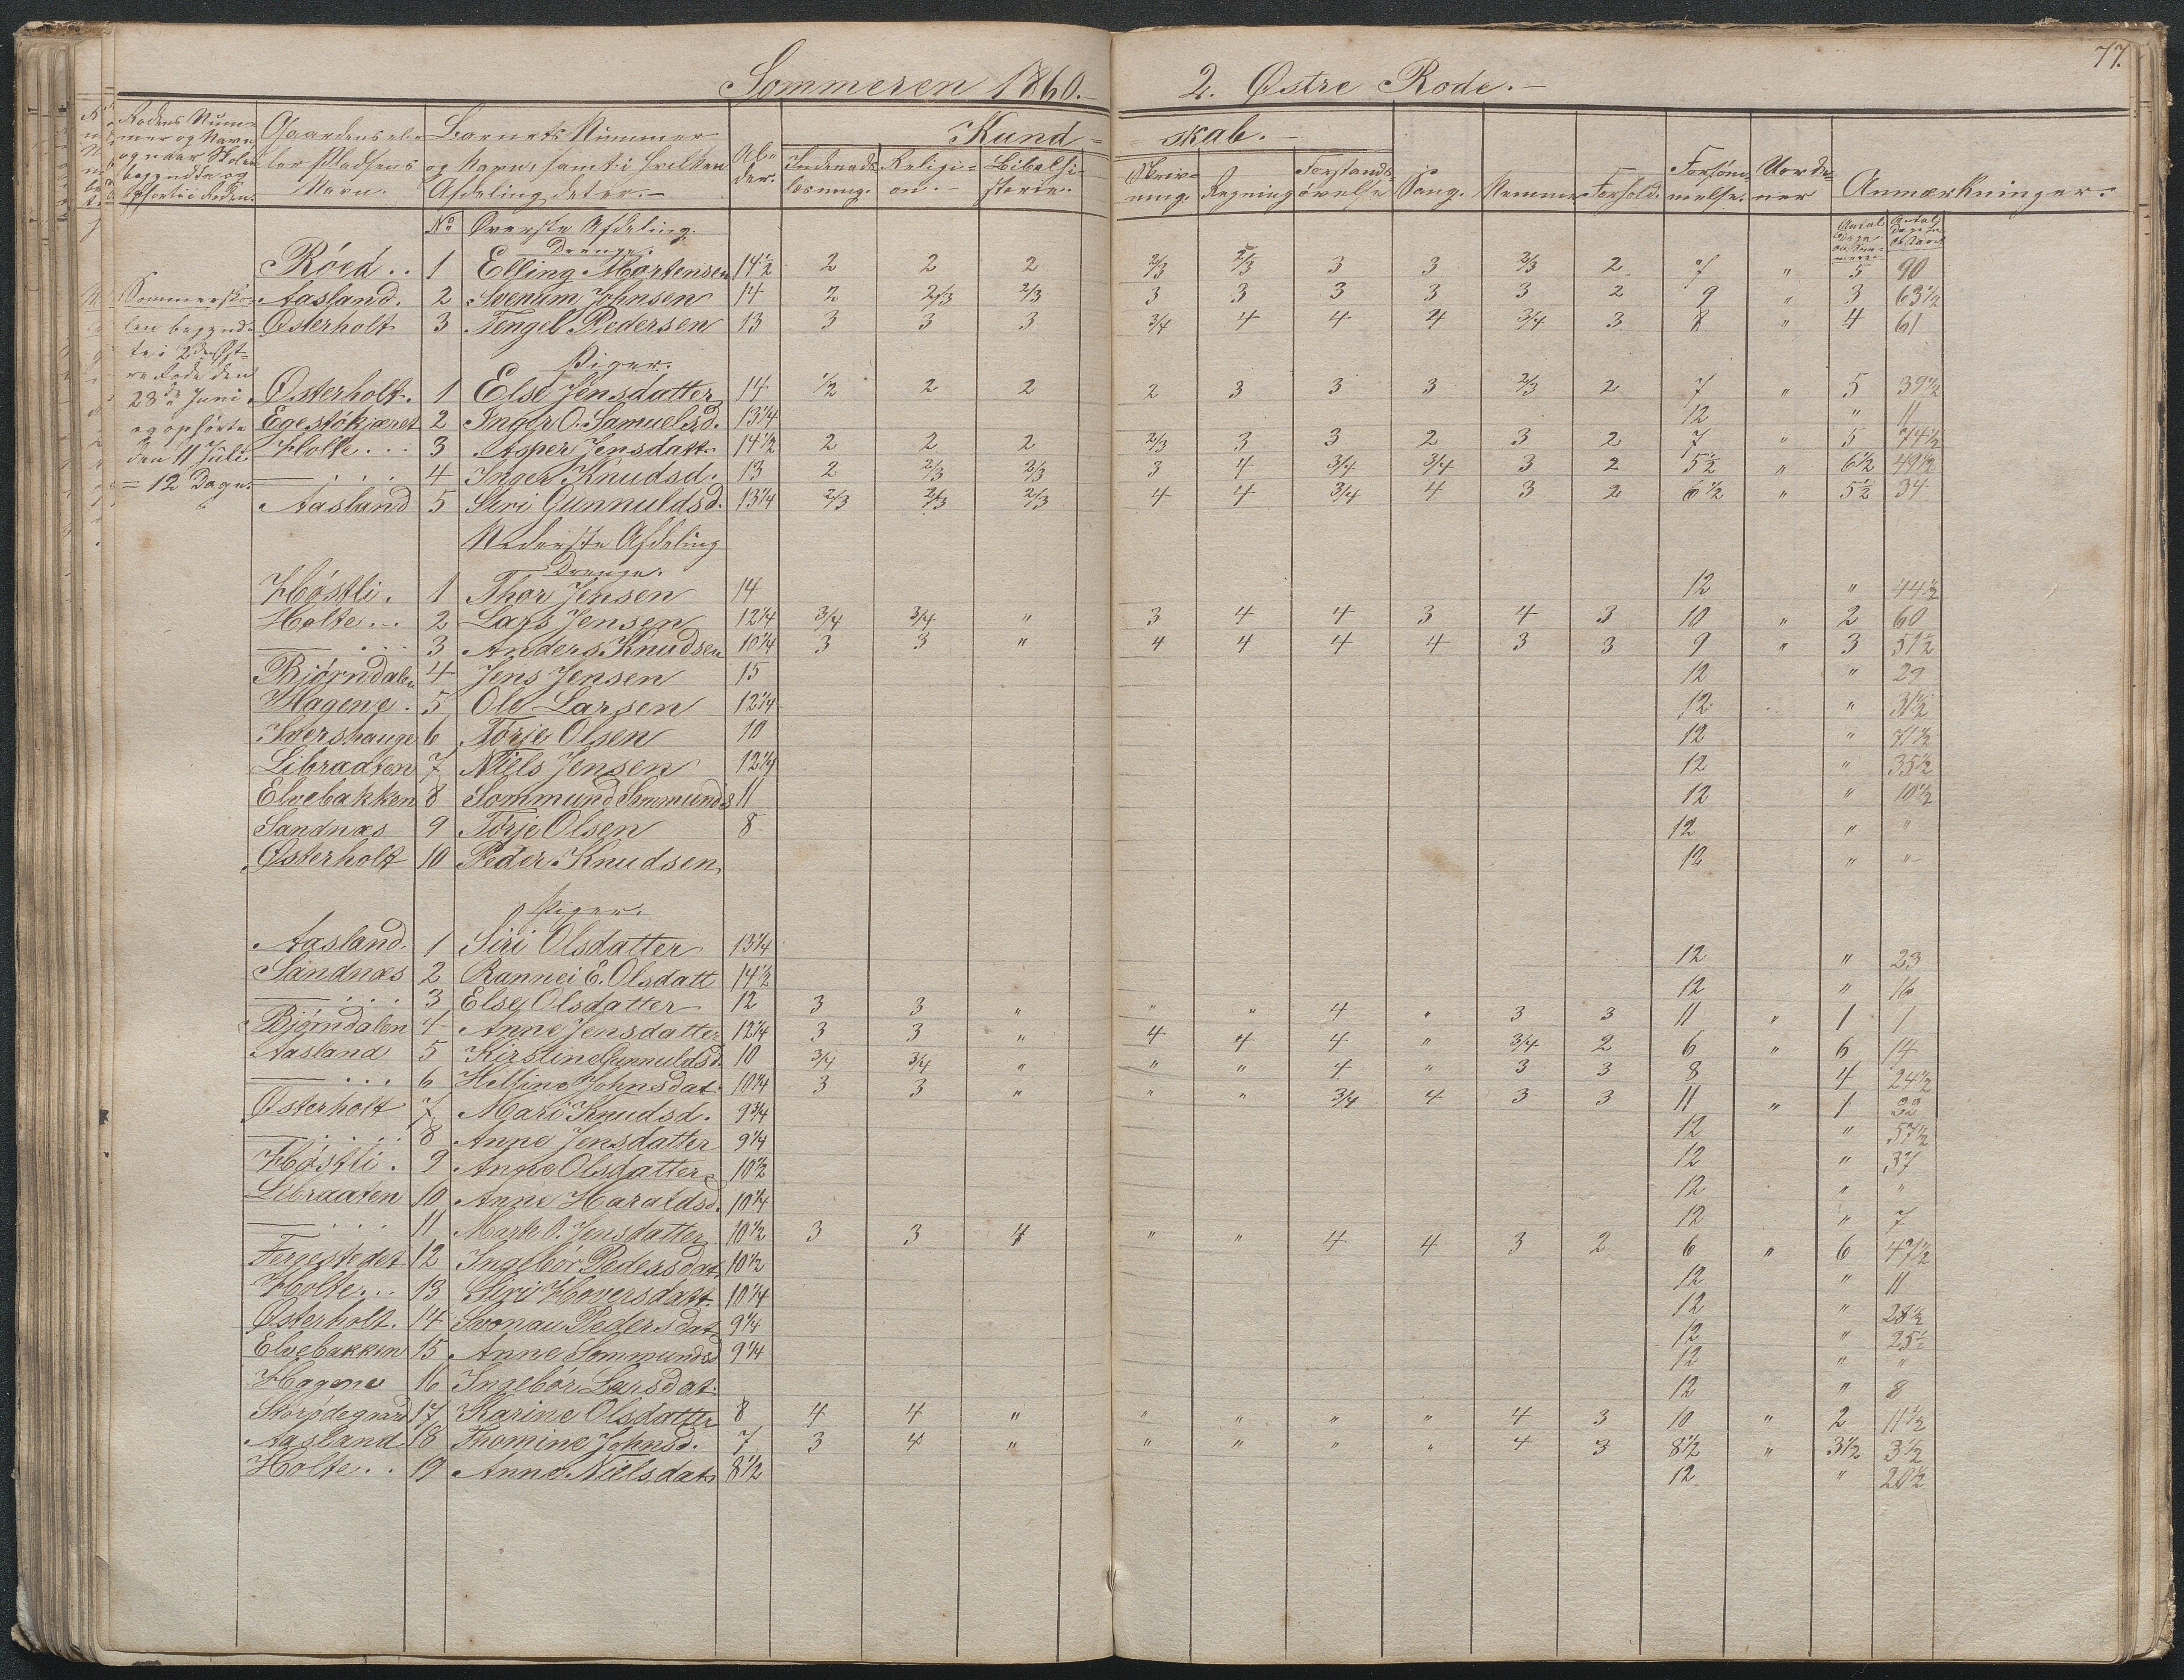 77.
Sommeren 1860.– 2. Østre Rode.–
Rodens Num= mer og Navn og naar Skolen begyndte og ophørte i Roden. Gaardens el= ler Pladsens Navn. Barnets Nummer og Navn, samt i hvilken Afdeling det er.– Al= der. Kund= skab.–
Indenads læsning. Religi= on.– Bibelhi= storie. Skriv= ning. Regning Forstands= øvelse Sang. Nemme Forhold. Forsøm= melse. Uorde= ner Anmærkninger.
No Øverste Afdeling.
Drenge.
Röed . . 1 Elling Mortensen 14½ 2 2 2 2/3 2/3 3 3 2/3 2 7 " 5 90
Aasland. 2 Svenum Johnsen 14 2 2/3 2/3 3 3 3 3 3 2 9 " 3 63½
Østerholt 3 Tengel Pedersen 13 3 3 3 3/4 4 4 4 3/4 3 8 " 4 61
Sommersko= len begynd= te i 2den Øst= re Rode den 28de Juni og ophørte den 11 Juli. = 12 Dage.
Piger.
Østerholt. 1 Else Jensdatter 14 1/2 2 2 2 3 3 3 2/3 2 7 " 5 39½
Egestökjæret 2 Inger O. Samuelsd. 13¼ 12 " 11
Holte . . . 3 Asper Jensdatt. 14½ 2 2 2 2/3 3 3 2 3 2 7 " 5 74½
— . . . 4 Inger Knudsd. 13 2 2/3 2/3 3 4 3/4 3/4 3 2 5½ " 6½ 49½
Aasland 5 Siri Gunnuldsd. 13¼ 2/3 2/3 2/3 4 4 3/4 4 3 2 6½ " 5½ 34
Nederste Afdeling
Drenge.
Höstli. 1 Thor Jensen 14 12 " 44½
Holte . . 2 Lars Jensen 12¼ 3/4 3/4 " 3 4 4 3 4 3 10 " 2 60
— . . . 3 Anders Knudsen 10¼ 3 3 " 4 4 4 4 3 3 9 " 3 51½
Bjørndalen 4 Jens Jensen 15 12 " 29
Hagene . 5 Ole Larsen 12¼ 12 " 31½
Ivershauge 6 Törje Olsen 10 12 " 71½
Libradten 7 Niels Jensen 12¼ 12 " 35½
Elvebakken 8 Sommund Sommunds 11 12 " 10½
Sandnæs 9 Törje Olsen 8 12 " "
Østerholt 10 Peder Knudsen 12 " "
Piger.
Aasland. 1 Siri Olsdatter 13¼ 12 " 23
Sandnæs 2 Rannei E. Olsdatt 14½ 12 " 16
— . . . 3 Else Olsdatter 12 3 3 " " " 4 " 3 3 11 " 1 1
Bjørndalen 4 Anne Jensdatter 12¼ 3 3 " 4 4 4 " 3/4 2 6 " 6 14
Aasland 5 Kirstine Gunnuldsd. 10 3/4 3/4 " " " 4 " 3 3 8 4 24½
— . . . 6 Helline Johnsdat. 10¾ 3 3 " " " 3/4 4 3 3 11 " 1 32
Østerholt 7 Mari Knudsd. 9¾ 12 " 57½
— . . . . 8 Anne Jensdatter 9¼ 12 " 37
Höstli . 9 Anne Olsdatter 10½ 12 " "
Libraaten 10 Anne Haraldsd. 10¼ 12 " 7
— . . . 11 Marte O. Jensdatter 10½ 3 3 4 " " 4 4 3 2 6 " 6 47½
Ferjestedet 12 Ingebör Pedersdat. 10½ 12 " 11
Holte . . . 13 Siri Hoversdatt. 10¼ 12 " 28½
Østerholt. 14 Svonau Pedersdat. 9¼ 12 " 25½
Elvebakken 15 Anne Sommundsd 9¼ 12 " "
Hagene 16 Ingebör Larsdat. 12 " 8
Storødegaard 17 Karine Olsdatter 8 4 4 " " " " " 4 3 10 " 2 11½
Aasland 18 Thomine Johnsd. 7 3 4 " " " " " 4 3 8½ " 3½ 3½
Holte . . 19 Anne Nielsdat. 8½ 12 " 20½